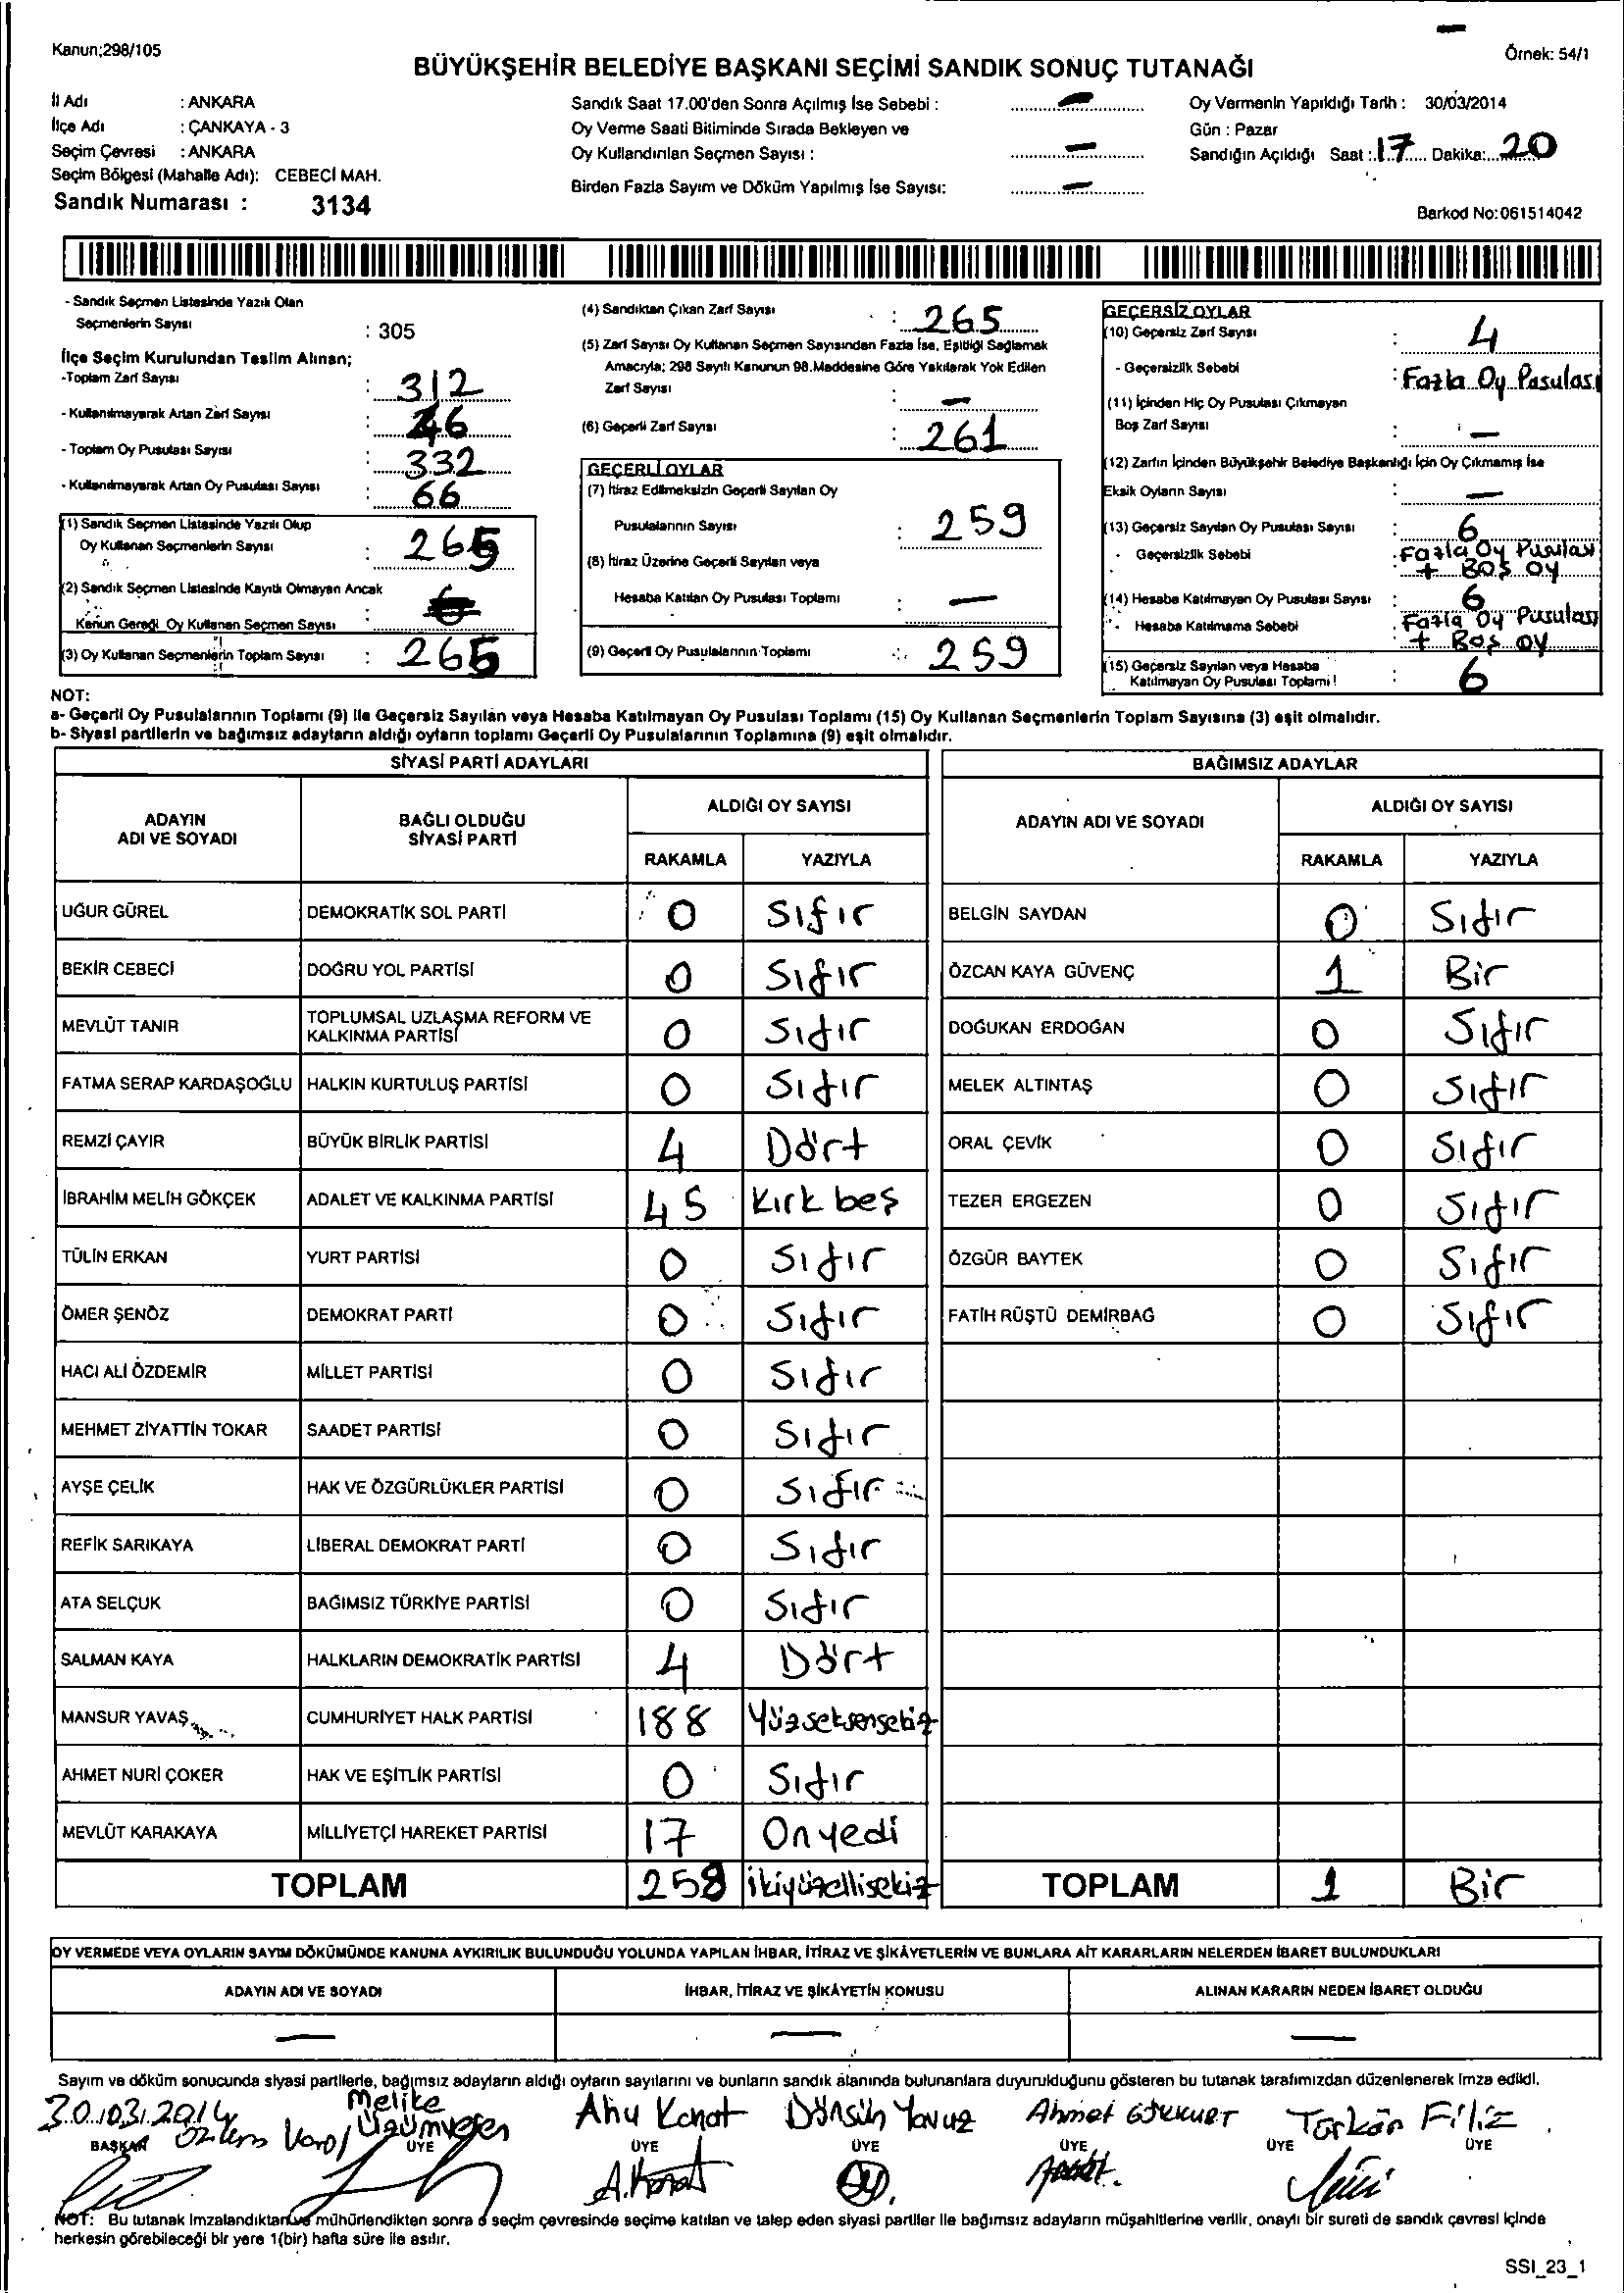 Kanun;298/105
Örnek: 54/1
BÜYÜKŞEHİR BELEDİYE BAŞKANI SEÇİMİ SANDIK SONUÇ TUTANAĞI
İl Adı : ANKARA
İlçe Adı : ÇANKAYA - 3
Seçim Çevresi : ANKARA
Seçim Bölgesi (Mahalle Adı): CEBECİ MAH.
Sandık Numarası : 3134
Sandık Saat 17.00'den Sonra Açılmış İse Sebebi : —
Oy Verme Saati Bitiminde Sırada Bekleyen ve
Oy Kullandırılan Seçmen Sayısı : —
Birden Fazla Sayım ve Döküm Yapılmış İse Sayısı: —
Oy Vermenin Yapıldığı Tarih : 30/03/2014
Gün : Pazar
Sandığın Açıldığı Saat : 17 Dakika: 20
Barkod No:061514042
- Sandık Seçmen Listesinde Yazılı Olan
Seçmenlerin Sayısı : 305
İlçe Seçim Kurulundan Teslim Alınan;
-Toplam Zarf Sayısı : 312
- Kullanılmayarak Artan Zarf Sayısı : 46
- Toplam Oy Pusulası Sayısı : 332
- Kullanılmayarak Artan Oy Pusulası Sayısı : 66
(1) Sandık Seçmen Listesinde Yazılı Olup
Oy Kullanan Seçmenlerin Sayısı : 265
(2) Sandık Seçmen Listesinde Kayıtlı Olmayan Ancak
Kanun Gereği Oy Kullanan Seçmen Sayısı
(3) Oy Kullanan Seçmenlerin Toplam Sayısı : 265
(4) Sandıktan Çıkan Zarf Sayısı : 265
(5) Zarf Sayısı Oy Kullanan Seçmen Sayısından Fazla İse, Eşitliği Sağlamak
Amacıyla; 298 Sayılı Kanunun 98.Maddesine Göre Yakılarak Yok Edilen
Zarf Sayısı : —
(6) Geçerli Zarf Sayısı : 261
GEÇERLİ OYLAR
(7) İtiraz Edilmeksizin Geçerli Sayılan Oy
Pusulalarının Sayısı : 259
(8) İtiraz Üzerine Geçerli Sayılan veya
Hesaba Katılan Oy Pusulası Toplamı : —
(9) Geçerli Oy Pusulalarının Toplamı : 259
GEÇERSİZ OYLAR
(10) Geçersiz Zarf Sayısı : 4
- Geçersizlik Sebebi : Fazla Oy Pusulası
(11) İçinden Hiç Oy Pusulası Çıkmayan
Boş Zarf Sayısı : —
(12) Zarfın İçinden Büyükşehir Belediye Başkanlığı İçin Oy Çıkmamış İse
Eksik Oyların Sayısı : —
(13) Geçersiz Sayılan Oy Pusulası Sayısı : 6
- Geçersizlik Sebebi : Fazla Oy Pusulası
+ Boş oy
(14) Hesaba Katılmayan Oy Pusulası Sayısı : 6
- Hesaba Katılmama Sebebi : Fazla Oy Pusulası
+ Boş oy
(15) Geçersiz Sayılan veya Hesaba
Katılmayan Oy Pusulası Toplamı : 6
NOT:
a- Geçerli Oy Pusulalarının Toplamı (9) ile Geçersiz Sayılan veya Hesaba Katılmayan Oy Pusulası Toplamı (15) Oy Kullanan Seçmenlerin Toplam Sayısına (3) eşit olmalıdır.
b- Siyasi partilerin ve bağımsız adayların aldığı oyların toplamı Geçerli Oy Pusulalarının Toplamına (9) eşit olmalıdır.
SİYASİ PARTİ ADAYLARI BAĞIMSIZ ADAYLAR
ADAYIN ADI VE SOYADI BAĞLI OLDUĞU SİYASİ PARTİ ALDIĞI OY SAYISI ADAYIN ADI VE SOYADI ALDIĞI OY SAYISI
RAKAMLA YAZIYLA RAKAMLA YAZIYLA
UĞUR GÜREL DEMOKRATİK SOL PARTİ 0 Sıfır BELGİN SAYDAN 0 Sıfır
BEKİR CEBECİ DOĞRU YOL PARTİSİ 0 Sıfır ÖZCAN KAYA GÜVENÇ 1 Bir
MEVLÜT TANIR TOPLUMSAL UZLAŞMA REFORM VE KALKINMA PARTİSİ 0 Sıfır DOĞUKAN ERDOĞAN 0 Sıfır
FATMA SERAP KARDAŞOĞLU HALKIN KURTULUŞ PARTİSİ 0 Sıfır MELEK ALTINTAŞ 0 Sıfır
REMZİ ÇAYIR BÜYÜK BİRLİK PARTİSİ 4 Dört ORAL ÇEVİK 0 Sıfır
İBRAHİM MELİH GÖKÇEK ADALET VE KALKINMA PARTİSİ 45 Kırk beş TEZER ERGEZEN 0 Sıfır
TÜLİN ERKAN YURT PARTİSİ 0 Sıfır ÖZGÜR BAYTEK 0 Sıfır
ÖMER ŞENÖZ DEMOKRAT PARTİ 0 Sıfır FATİH RÜŞTÜ DEMİRBAĞ 0 Sıfır
HACI ALİ ÖZDEMİR MİLLET PARTİSİ 0 Sıfır
MEHMET ZİYATTİN TOKAR SAADET PARTİSİ 0 Sıfır
AYŞE ÇELİK HAK VE ÖZGÜRLÜKLER PARTİSİ 0 Sıfır
REFİK SARIKAYA LİBERAL DEMOKRAT PARTİ 0 Sıfır
ATA SELÇUK BAĞIMSIZ TÜRKİYE PARTİSİ 0 Sıfır
SALMAN KAYA HALKLARIN DEMOKRATİK PARTİSİ 4 Dört
MANSUR YAVAŞ CUMHURİYET HALK PARTİSİ 188 Yüzseksensekiz
AHMET NURİ ÇOKER HAK VE EŞİTLİK PARTİSİ 0 Sıfır
MEVLÜT KARAKAYA MİLLİYETÇİ HAREKET PARTİSİ 17 Onyedi
TOPLAM 258 ikiyüzellisekiz TOPLAM 1 Bir
OY VERMEDE VEYA OYLARIN SAYIM DÖKÜMÜNDE KANUNA AYKIRILIK BULUNDUĞU YOLUNDA YAPILAN İHBAR, İTİRAZ VE ŞİKÂYETLERİN VE BUNLARA AİT KARARLARIN NELERDEN İBARET BULUNDUKLARI
ADAYIN ADI VE SOYADI İHBAR, İTİRAZ VE ŞİKÂYETİN KONUSU ALINAN KARARIN NEDEN İBARET OLDUĞU
— — —
Sayım ve döküm sonucunda siyasi partilerle, bağımsız adayların aldığı oyların sayılarını ve bunların sandık alanında bulunanlara duyurulduğunu gösteren bu tutanak tarafımızdan düzenlenerek imza edildi.
30.03.2014 Melike Ahu Kanat Dursun Yavuz Ahmet Türkan Filiz
BAŞKAN ÜYE ÜYE ÜYE ÜYE ÜYE ÜYE
A.Kanat
NOT: Bu tutanak imzalandıktan ve mühürlendikten sonra o seçim çevresinde seçime katılan ve talep eden siyasi partiler ile bağımsız adayların müşahitlerine verilir, onaylı bir sureti de sandık çevresi içinde
herkesin görebileceği bir yere 1(bir) hafta süre ile asılır.
SSI_23_1